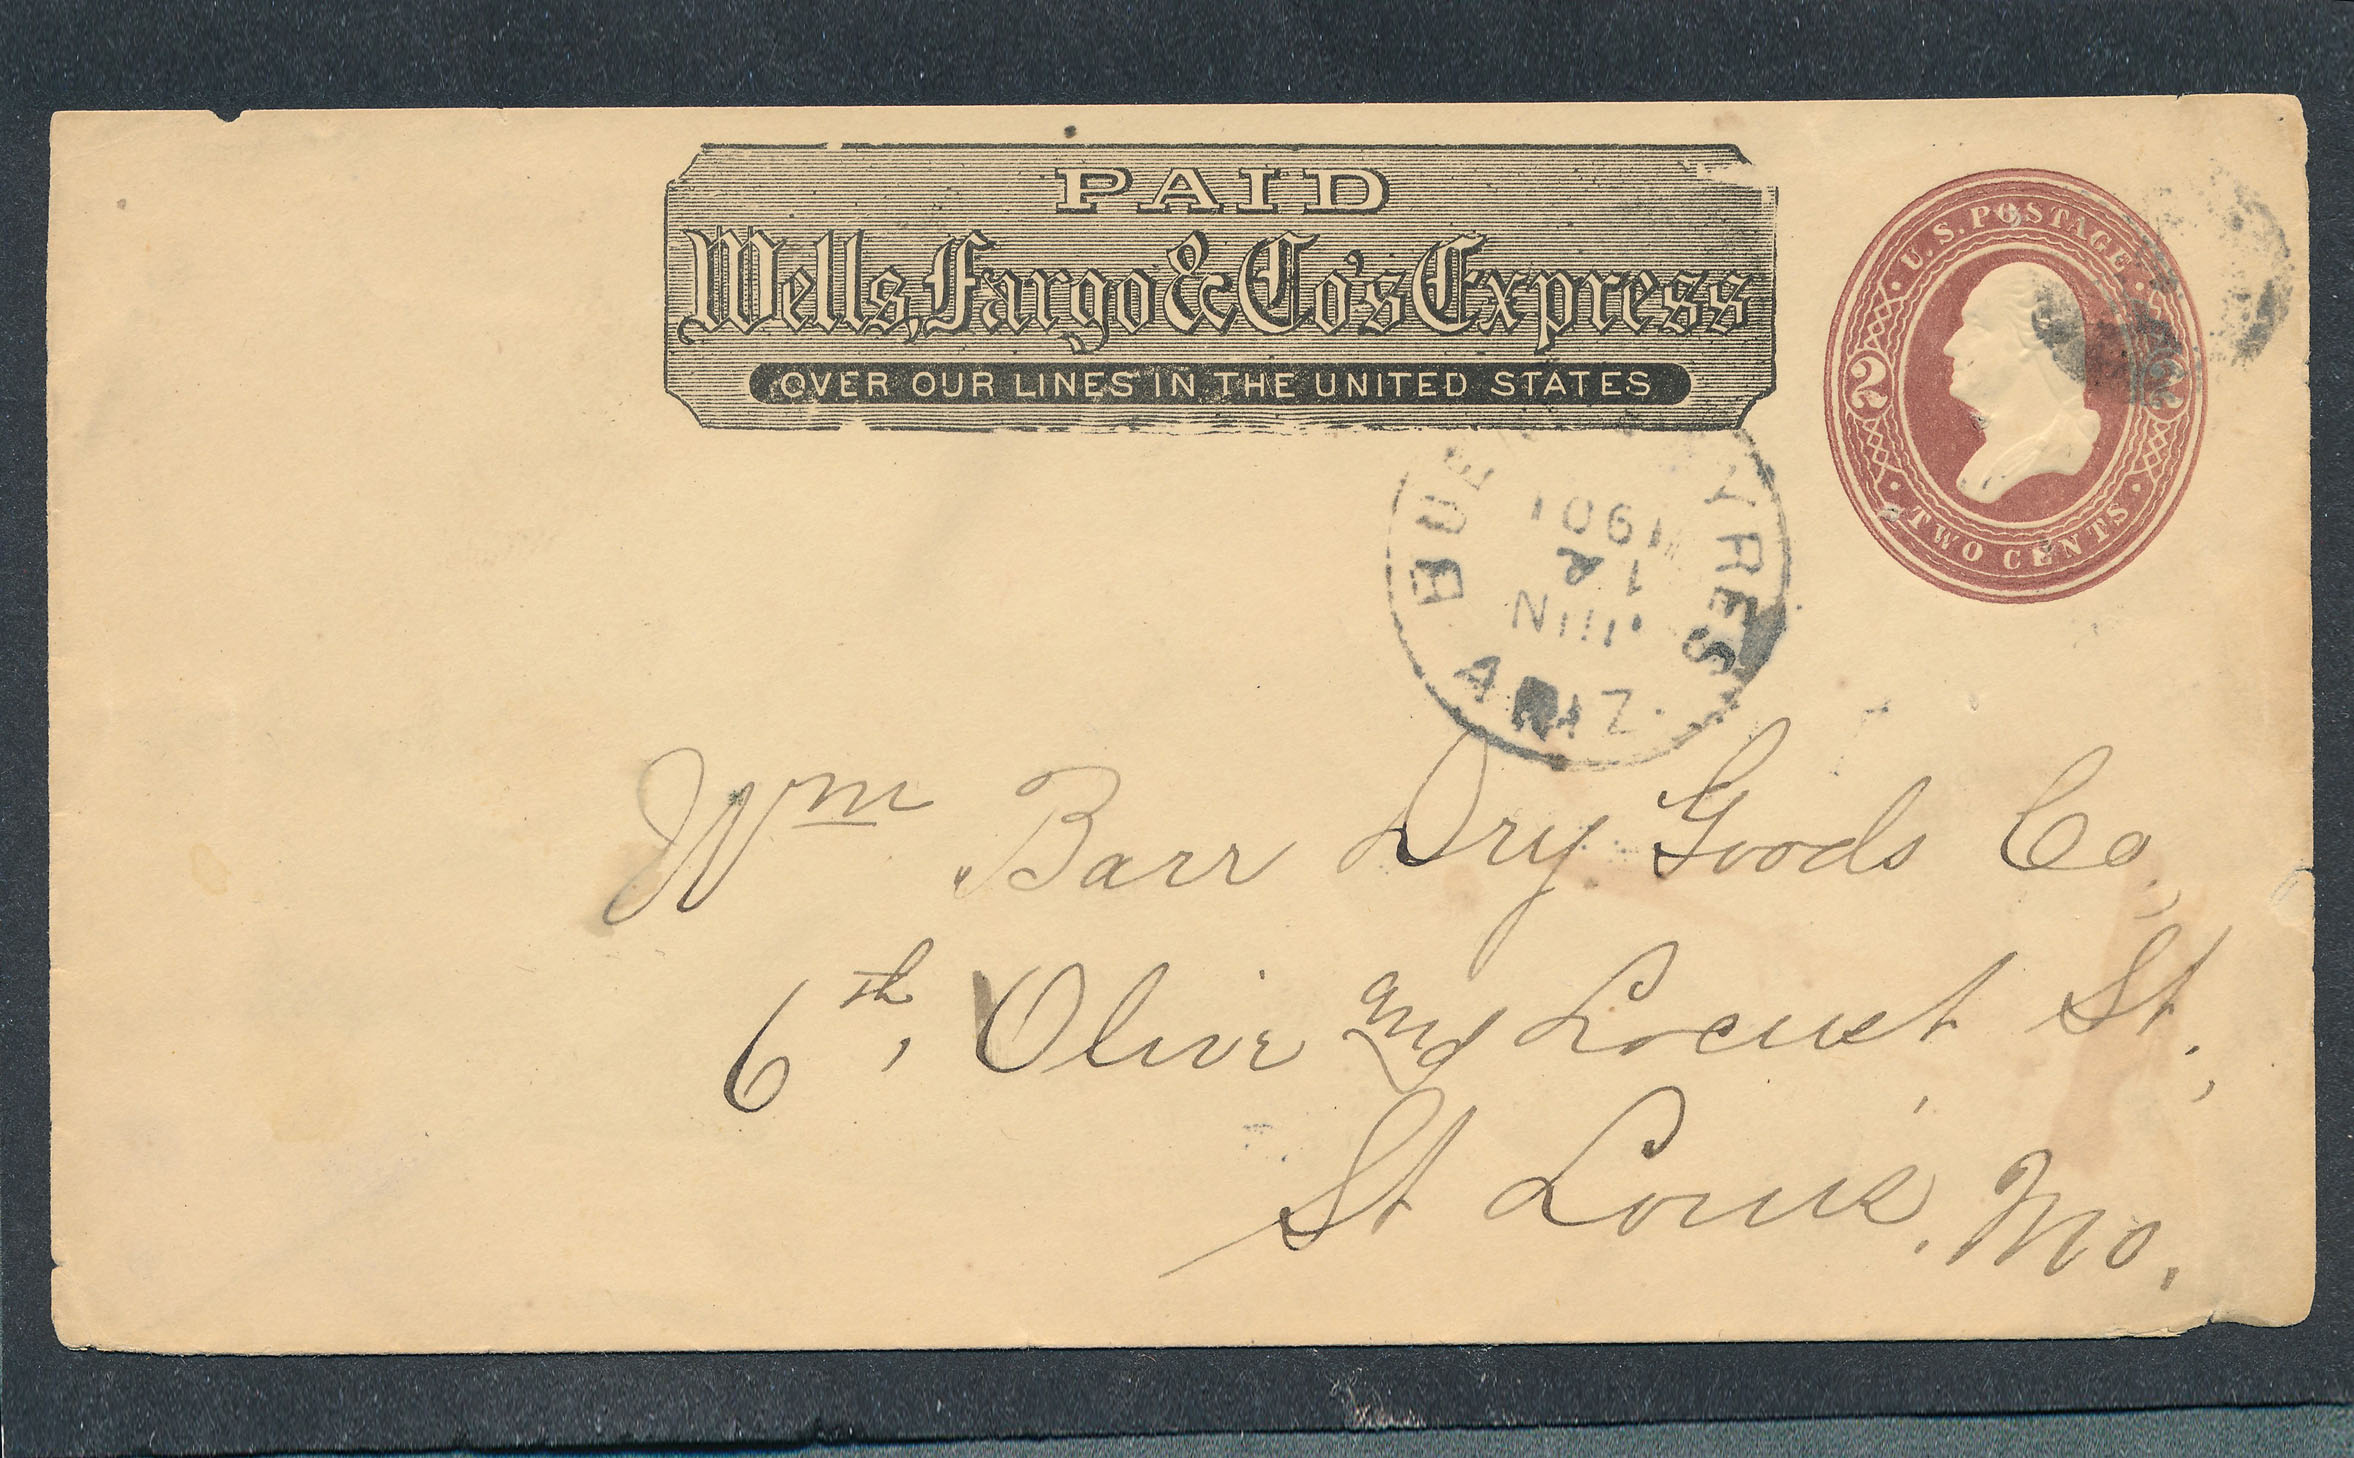 PAID
Wells, Fargo & Co's Express
OVER OUR LINES IN THE UNITED STATES
U.S. POSTAGE
2 2
TWO CENTS
BUE YRES
1901
ARIZ.
Wm Barr Dry Goods Co,
6th, Olive and Locust St,
St Louis, Mo.